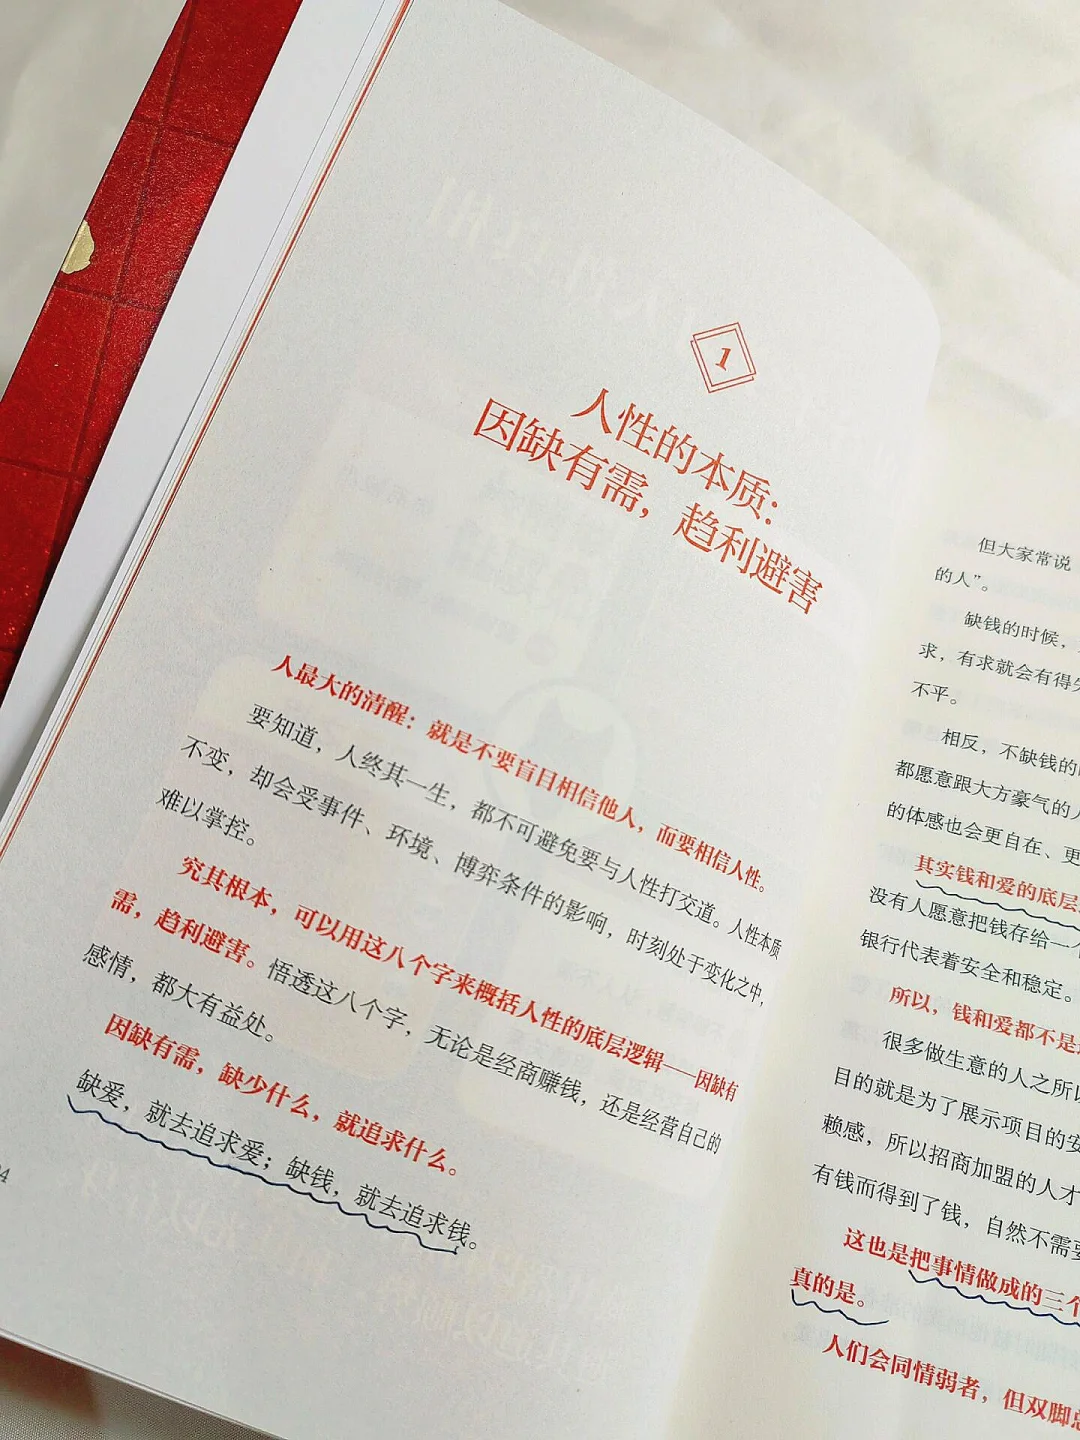 1
人性的本质：
因缺有需，趋利避害
人最大的清醒：就是不要盲目相信他人，而要相信人性。
要知道，人终其一生，都不可避免要与人性打交道。人性本质
不变，却会受事件、环境、博弈条件的影响，时刻处于变化之中，
难以掌控。
究其根本，可以用这八个字来概括人性的底层逻辑——因缺有
需，趋利避害。悟透这八个字，无论是经商赚钱，还是经营自己的
感情，都大有益处。
因缺有需，缺少什么，就追求什么。
缺爱，就去追求爱；缺钱，就去追求钱。
4
但大家常说
的人”。
缺钱的时候，
求，有求就会有得失
不平。
相反，不缺钱的
都愿意跟大方豪气的人
的体感也会更自在、更
其实钱和爱的底层
没有人愿意把钱存给一
银行代表着安全和稳定。
所以，钱和爱都不是
很多做生意的人之所以
目的就是为了展示项目的安
赖感，所以招商加盟的人才
有钱而得到了钱，自然不需要
这也是把事情做成的三个
真的是。
人们会同情弱者，但双脚总